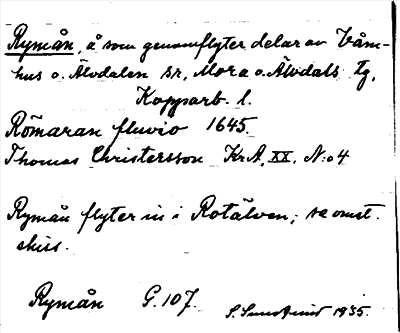 Rymån, å som genomflyter delar av Våm-
hus o. Älvdalen sr, Mora o. Älvdals tg,
Kopparb. l.
Römaran fluvio 1645
Thomas Christersson KrA, XX, N:o 4
Rymån flyter in i Rotälven; se omst.
skiss.
Rymån G. 107.
S. 1935.